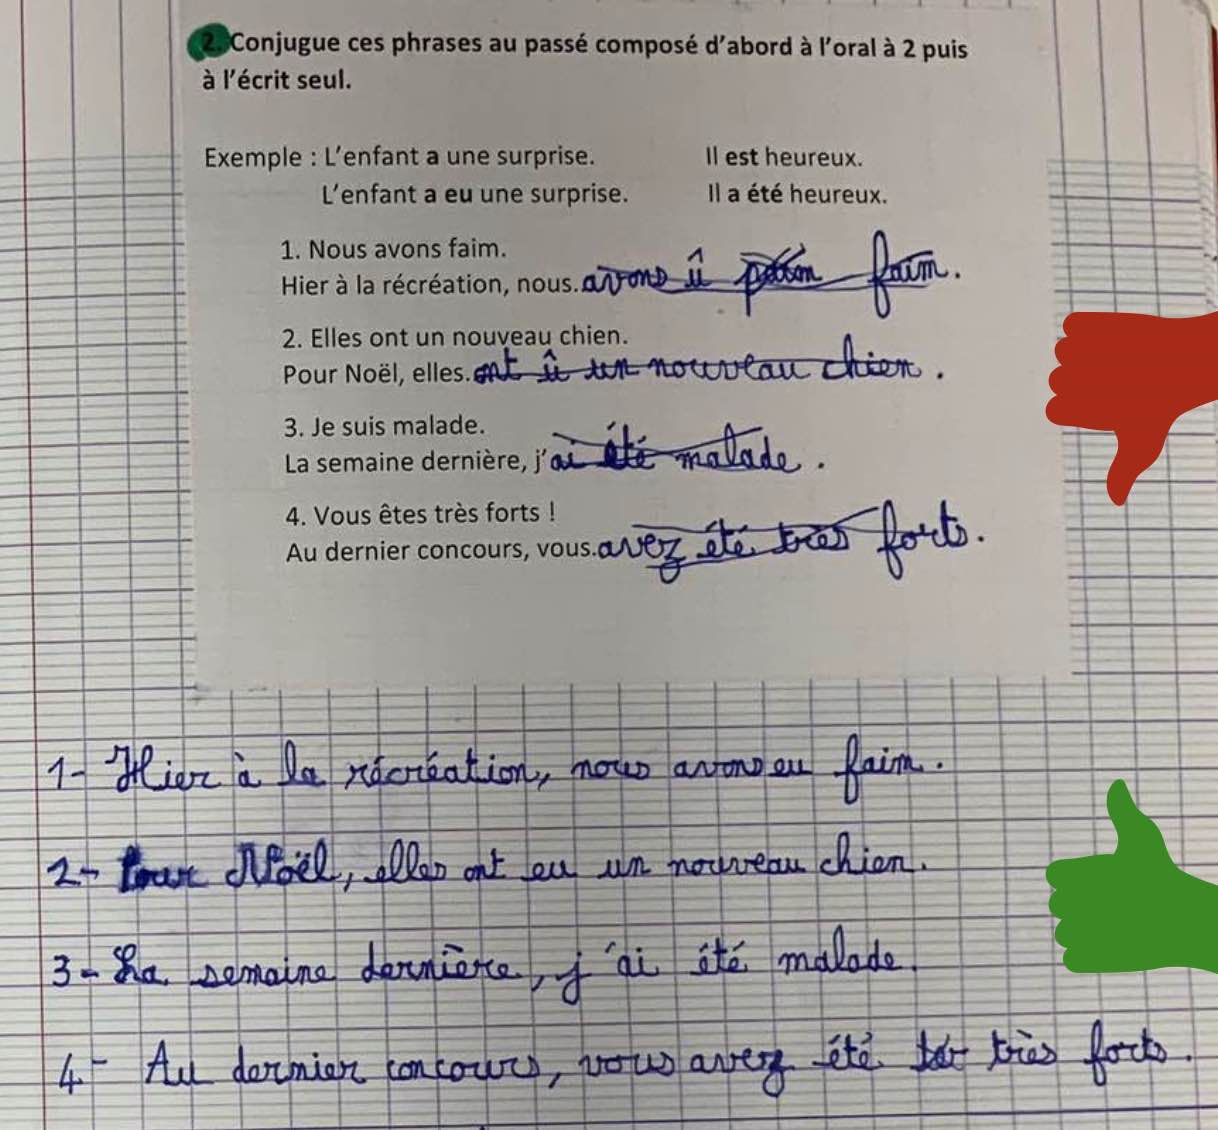 2. Conjugue ces phrases au passé composé d'abord à l'oral à 2 puis
à l'écrit seul.
Exemple : L'enfant a une surprise. Il est heureux.
L'enfant a eu une surprise. Il a été heureux.
1. Nous avons faim.
Hier à la récréation, nous. avons û faim.
2. Elles ont un nouveau chien.
Pour Noël, elles. ont û un nouveau chien.
3. Je suis malade.
La semaine dernière, j'ai été malade.
4. Vous êtes très forts !
Au dernier concours, vous. avez été très forts.
1- Hier à la récréation, nous avons eu faim.
2- Pour Noël, elles ont eu un nouveau chien.
3- La semaine dernière, j'ai été malade.
4- Au dernier concours, vous avez été très forts.